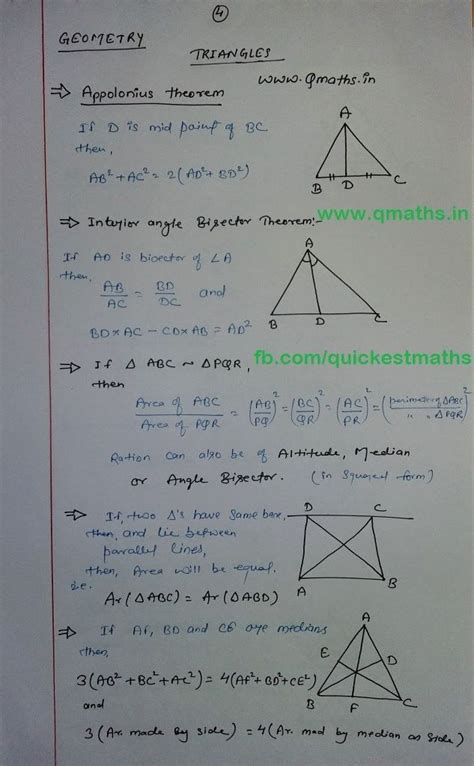 4
GEOMETRY
TRIANGLES
www.Qmaths.in
⇒ Appolonius theorem
If D is mid point of BC
then,
AB² + AC² = 2(AD² + BD²)
A
B D C
www.qmaths.in
⇒ Interior angle Bisector Theorem:-
If AD is bisector of ∠A
then,
AB/AC = BD/DC and
BD×AC − CD×AB = AD²
A
B D C
fb.com/quickestmaths
⇒ If Δ ABC ~ ΔPQR,
then
Area of ABC/Area of PQR = (AB/PQ)² = (BC/QR)² = (AC/PR)² = (perimeter of ΔABC/" " ΔPQR)²
Ration can also be of Altitude, Median
or Angle Bisector. (in squared form)
⇒ If, two Δ's have same base,
then, and lie between
parallel lines,
then, Area will be equal.
i.e.
Ar(ΔABC) = Ar(ΔABD)
D C
A B
⇒ If AF, BD and CE are medians
then,
3(AB² + BC² + AC²) = 4(AF² + BD² + CE²)
and
3(Ar. made by side) = 4(Ar. mad by median as side)
A
E D
B F C